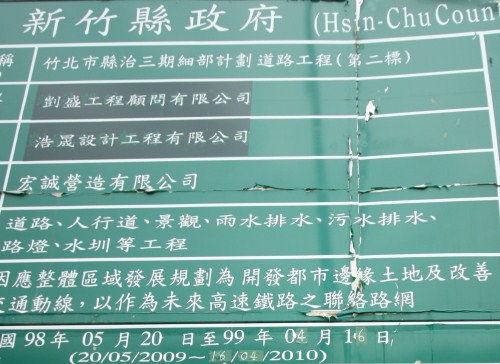 新竹縣政府 (Hsin-Chu Coun
稱 竹北市縣治三期細部計劃道路工程(第二標)
劃盛工程顧問有限公司
浩晟設計工程有限公司
宏誠營造有限公司
道路、人行道、景觀、雨水排水、污水排水、
路燈、水圳等工程
因應整體區域發展規劃為開發都市邊緣土地及改善
交通動線,以作為未來高速鐵路之聯絡路網
國98年05月20日至99年04月16日
(20/05/2009~16/04/2010)